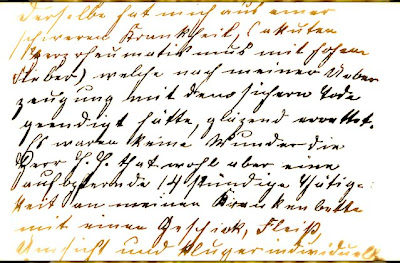 derselbe hat mich aus einer
schweren Krankheit, (akuten
Herzrheumatismus mit hohem
Fieber) welche nach meiner Ueber
zeugung mit dem sichern Tode
geendigt hätte, gläzend errettet.
Es waren keine Wunder die
Herr H. H. that wohl aber eine
aufopfernde 14 stündige Thätig:
keit an meinen Krankenbette
mit einen Geschick, Fleiß,
Umsicht und kluger individuell